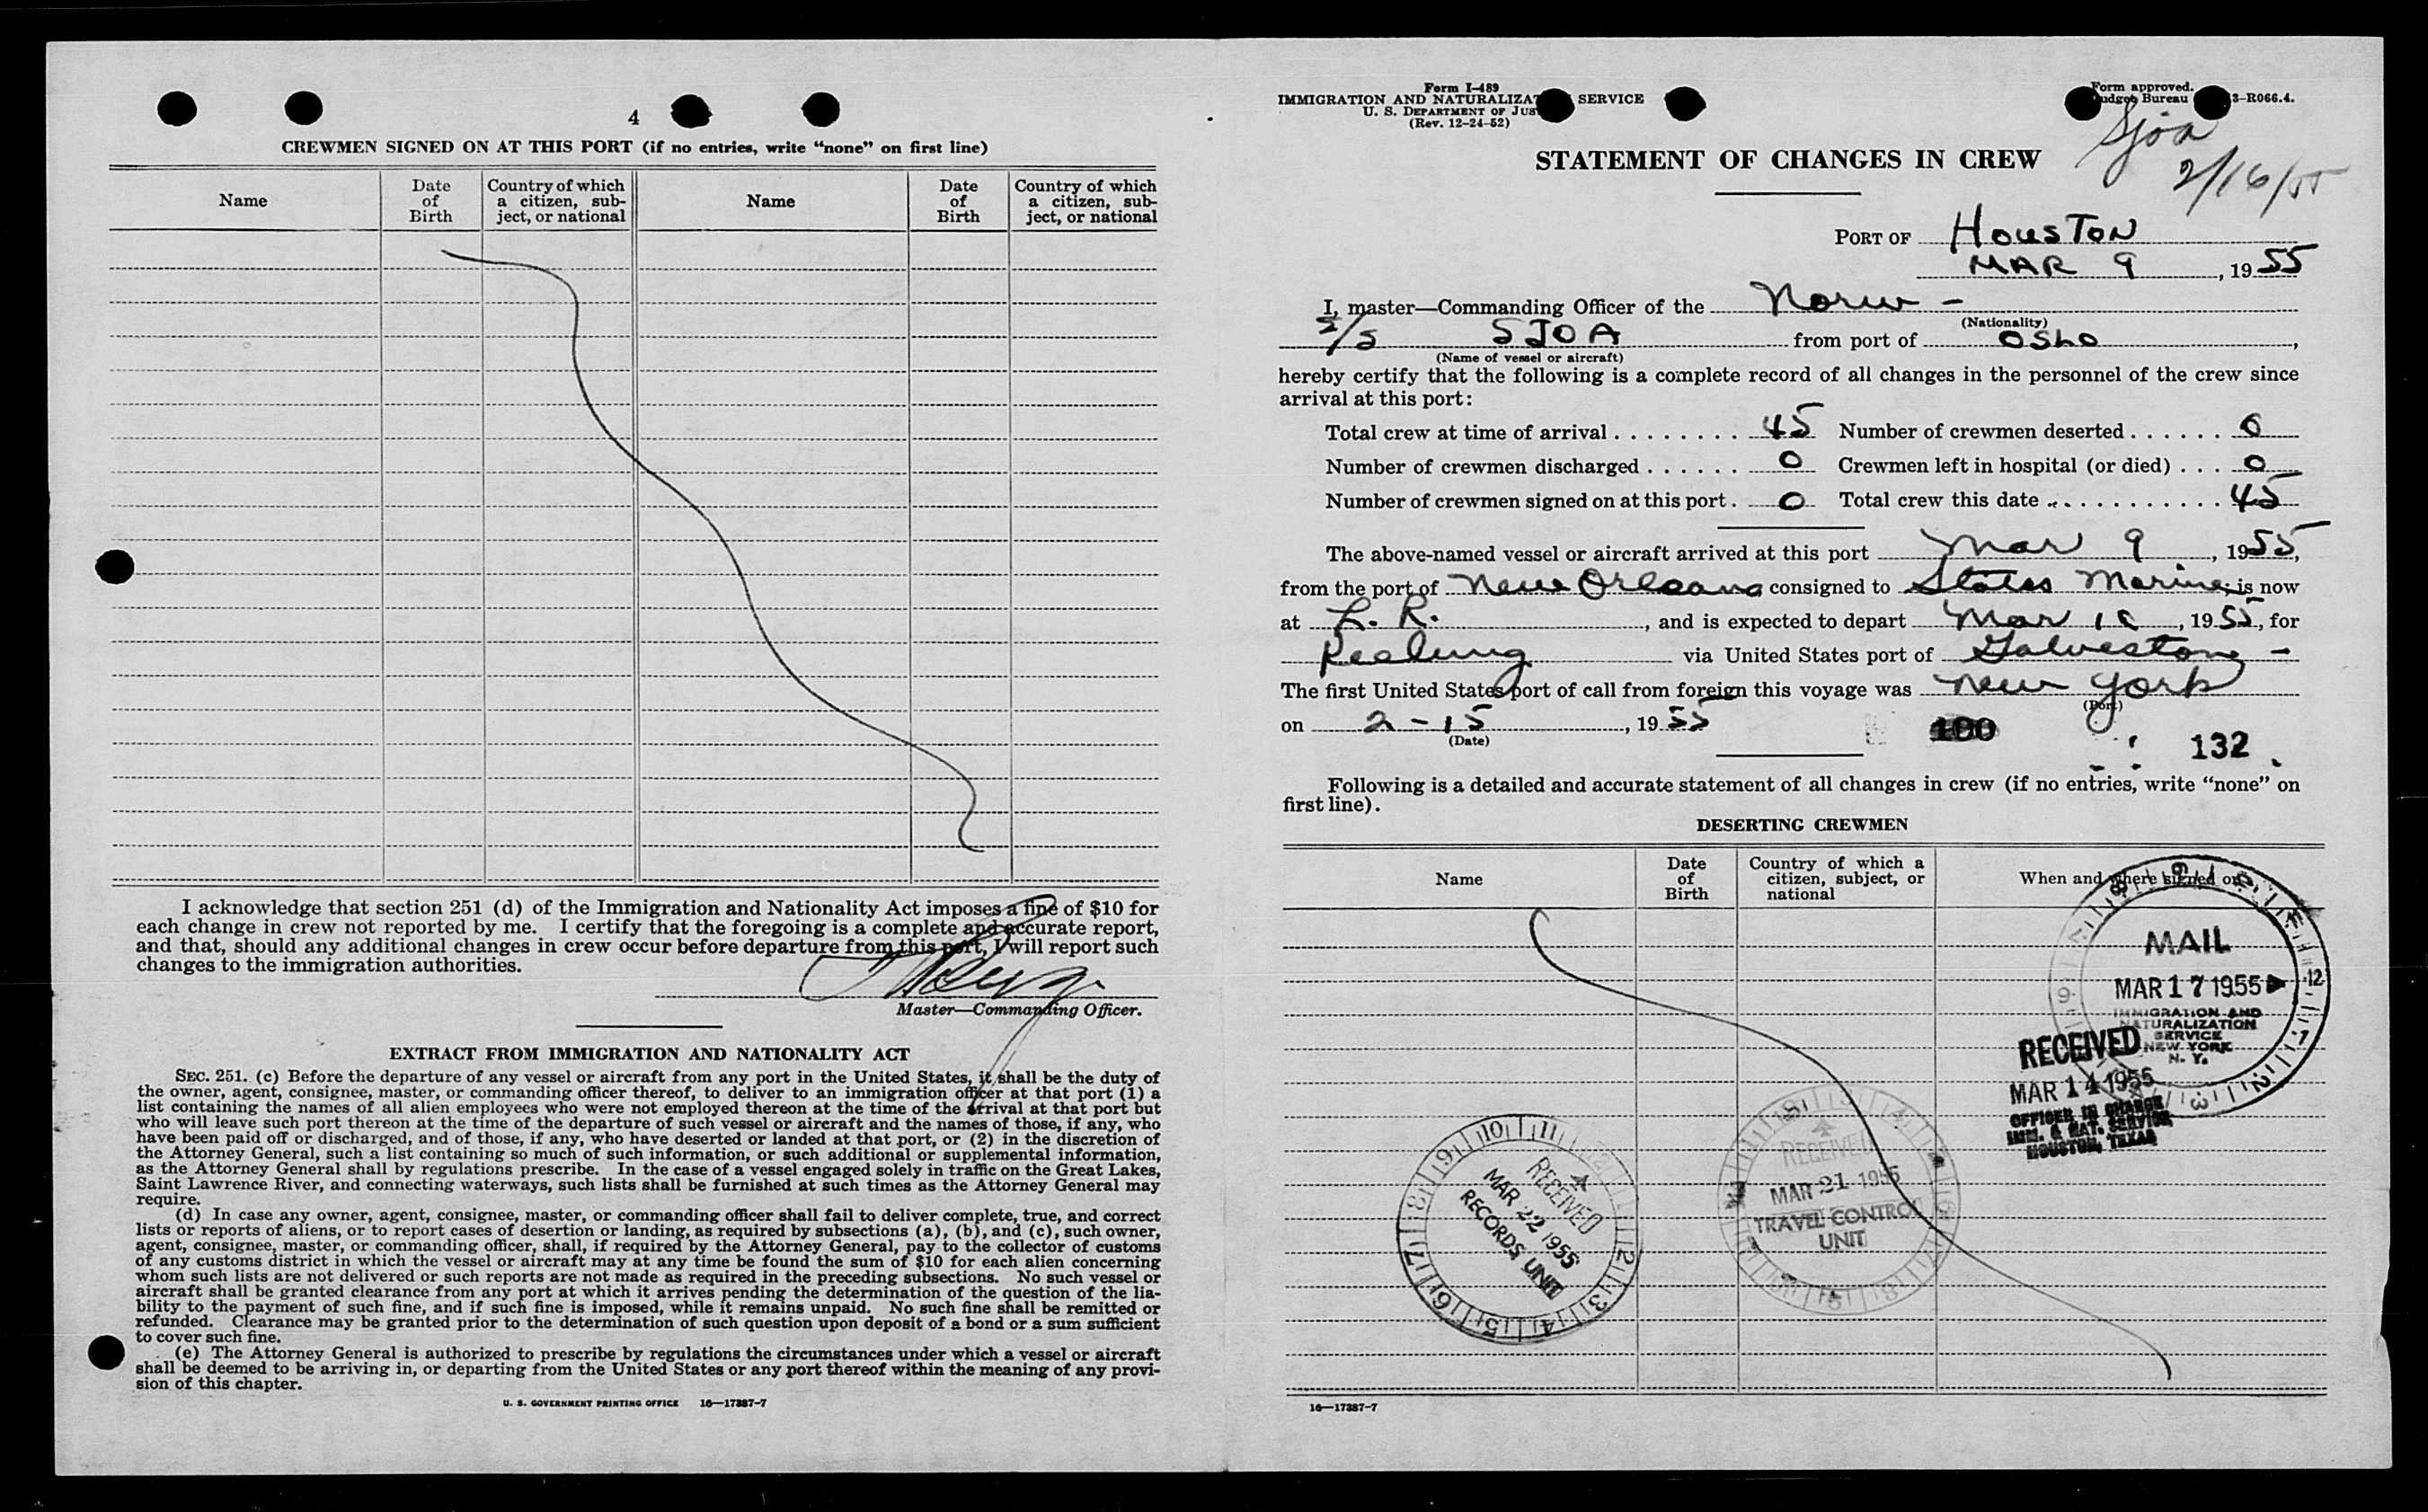 4
CREWMEN SIGNED ON AT THIS PORT (if no entries, write “none” on first line)
Name
Date of Birth
Country of which a citizen, subject, or national
Name
Date of Birth
Country of which a citizen, subject, or national
I acknowledge that section 251 (d) of the Immigration and Nationality Act imposes a fine of $10 for
each change in crew not reported by me. I certify that the foregoing is a complete and accurate report,
and that, should any additional changes in crew occur before departure from this port, I will report such
changes to the immigration authorities.
Master—Commanding Officer.
EXTRACT FROM IMMIGRATION AND NATIONALITY ACT
SEC. 251. (c) Before the departure of any vessel or aircraft from any port in the United States, it shall be the duty of
the owner, agent, consignee, master, or commanding officer thereof, to deliver to an immigration officer at that port (1) a
list containing the names of all alien employees who were not employed thereon at the time of the arrival at that port but
who will leave such port thereon at the time of the departure of such vessel or aircraft and the names of those, if any, who
have been paid off or discharged, and of those, if any, who have deserted or landed at that port, or (2) in the discretion of
the Attorney General, such a list containing so much of such information, or such additional or supplemental information,
as the Attorney General shall by regulations prescribe. In the case of a vessel engaged solely in traffic on the Great Lakes,
Saint Lawrence River, and connecting waterways, such lists shall be furnished at such times as the Attorney General may
require.
(d) In case any owner, agent, consignee, master, or commanding officer shall fail to deliver complete, true, and correct
lists or reports of aliens, or to report cases of desertion or landing, as required by subsections (a), (b), and (c), such owner,
agent, consignee, master, or commanding officer, shall, if required by the Attorney General, pay to the collector of customs
of any customs district in which the vessel or aircraft may at any time be found the sum of $10 for each alien concerning
whom such lists are not delivered or such reports are not made as required in the preceding subsections. No such vessel or
aircraft shall be granted clearance from any port at which it arrives pending the determination of the question of the lia-
bility to the payment of such fine, and if such fine is imposed, while it remains unpaid. No such fine shall be remitted or
refunded. Clearance may be granted prior to the determination of such question upon deposit of a bond or a sum sufficient
to cover such fine.
(e) The Attorney General is authorized to prescribe by regulations the circumstances under which a vessel or aircraft
shall be deemed to be arriving in, or departing from the United States or any port thereof within the meaning of any provi-
sion of this chapter.
U. S. GOVERNMENT PRINTING OFFICE 16—17387-7
Form I-489
IMMIGRATION AND NATURALIZAT SERVICE
U. S. DEPARTMENT OF JUS
(Rev. 12-24-52)
Form approved.
udget Bureau 3-R066.4.
Sjoa
2/16/55
STATEMENT OF CHANGES IN CREW
PORT OF Houston
MAR 9, 1955
I, master—Commanding Officer of the Norw -
(Nationality)
S/S SJOA from port of OSLO,
(Name of vessel or aircraft)
hereby certify that the following is a complete record of all changes in the personnel of the crew since
arrival at this port:
Total crew at time of arrival 45 Number of crewmen deserted 0
Number of crewmen discharged 0 Crewmen left in hospital (or died) 0
Number of crewmen signed on at this port 0 Total crew this date 45
The above-named vessel or aircraft arrived at this port Mar 9, 1955,
from the port of New Orleans consigned to States Marine; is now
at L. R., and is expected to depart Mar 10, 1955, for
Keelung via United States port of Galveston -
The first United States port of call from foreign this voyage was New York
(Port)
on 2-15, 1955
(Date)
100
132
Following is a detailed and accurate statement of all changes in crew (if no entries, write “none” on
first line).
DESERTING CREWMEN
Name
Date of Birth
Country of which a citizen, subject, or national
When and where signed on
MAIL
MAR 17 1955
IMMIGRATION AND
NATURALIZATION
SERVICE
NEW YORK
N. Y.
RECEIVED
MAR 14 1955
OFFICER IN CHARGE
IMM. & NAT. SERVICE
HOUSTON, TEXAS
RECEIVED
MAR 22 1955
RECORDS UNIT
RECEIVED
MAR 21 1955
TRAVEL CONTROL
UNIT
16—17387-7